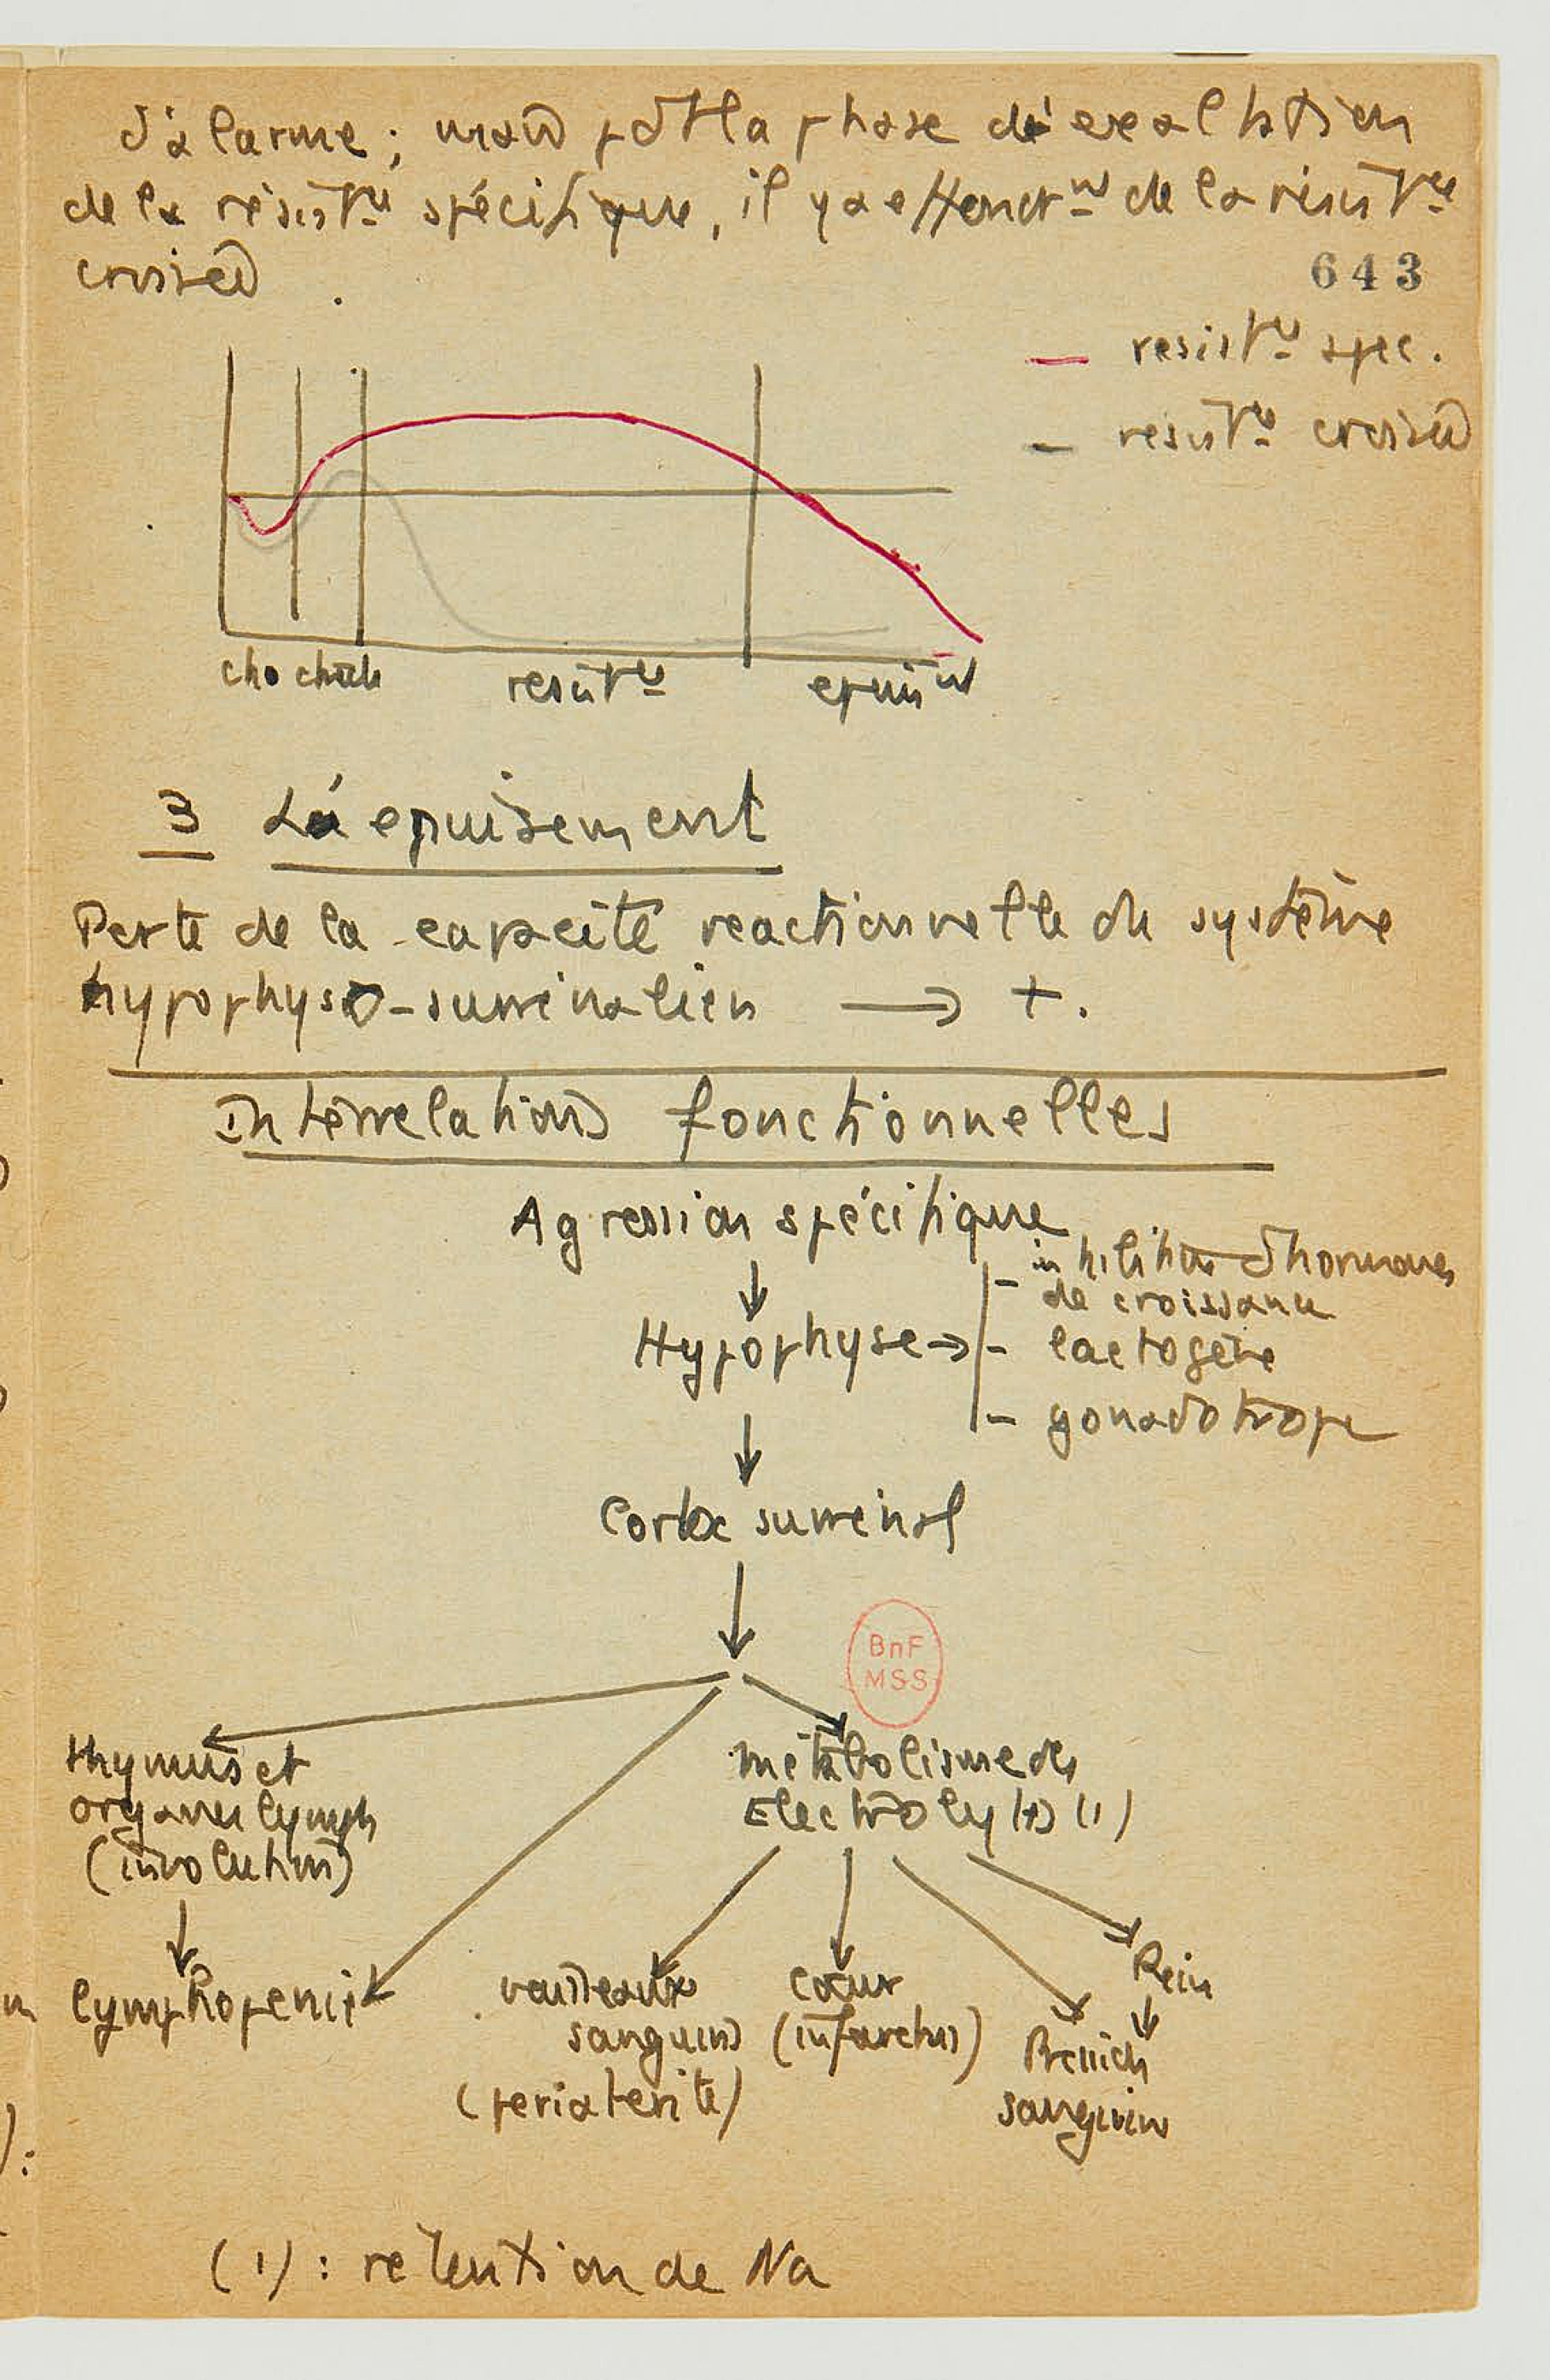 d'alarme ; mais pdt la phase d'exaltation
de la résistce spécifique, il y a effondrmt de la résistce
croisée.
643
— resistce spec.
— resistce croisée
cho choch resistce epuismt
3 L'épuisement
Perte de la capacité reactionnelle du système
hypophyso-surrénalien → +.
Interrelations fonctionnelles
Agression spécifique
- inhibition d'hormones
de croissance
Hypophyse → - lactogène
- gonadotrope
Cortex surrénal
BnF
MSS
thymus et
organes lymph
(involution)
métabolisme des
Electrolytes (1)
lymphopenie
vaisseaux
sanguins
(periaterite)
coeur
(infarctus)
Rein
Pression
sanguine
(1) : retention de Na